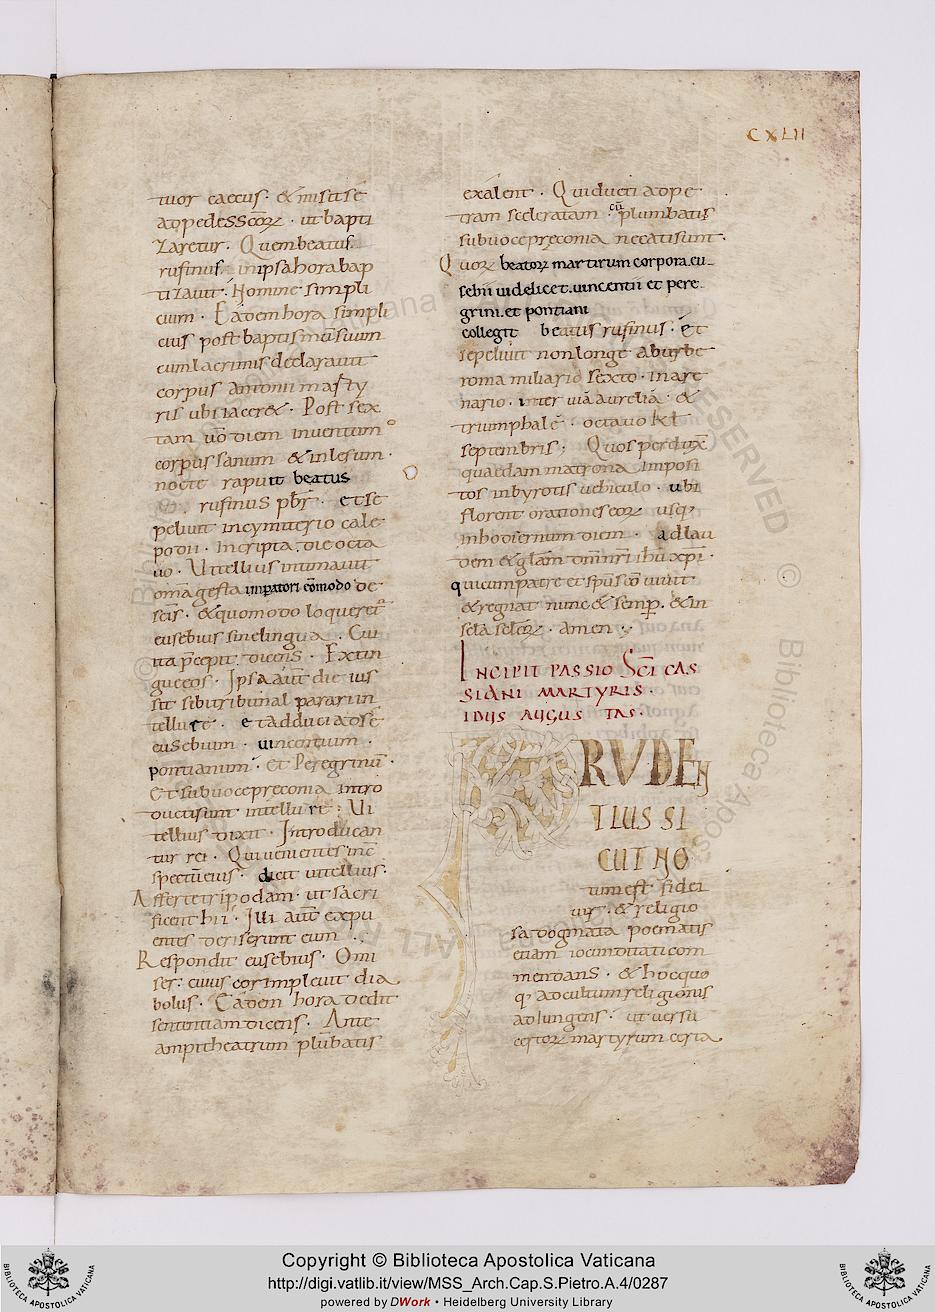 CXLII
tuor caecus · & misit se
ad pedes scōrꝝ · ut bapti
zaretur · Quem beatus
rufinus · in ipsa hora bap
tizavit · Nomine simpli
cium · Eadem hora simpli
cius post baptismū suum
cum lacrimis declaravit
corpus antonii marty
ris ubi iacer& · Post sex
tam ūo diem inventum
corpus sanum & inlesum ·
nocte rapuit beatus
rufinus pbr̄ · et se
pelivit in cymiterio cale
podii · In cripta · die octa
vo · Vitellius intimavit
om̄a gesta imp̄atori cōmodo de
sc̄is · & quomodo loqueret᷑
eusebius sine lingua · Cui
ita p̄cepit dicens · Extin
gue eos · Ipsa aut̄ die ius
sit sibi tribunal parari in
tellure · et adduci ad se
eusebium · vincentium ·
pontianum · et Peregrinū ·
Et sub voce preconia intro
ducti sunt in tellure : Vi
tellius dixit · Introducan
tur rei · Qui venientes in c̄
spectū eius · dicit vitellius ·
Afferte tripodam · ut sacri
ficent hii · Illi aut̄ expu
entes deriserunt eum ·
Respondit eusebius · O mi
ser : cuius cor implevit dia
bolus · Eadem hora dedit
sententiam dicens · Ante
ampitheatrum plūbatis
exalent · Qui ducti ad pe
tram sceleratam · cū plumbatis
sub voce preconia necati sunt ·
Quorꝝ beatorꝝ martirum corpora eu
sebii videlicet . vincentii et pere
grini . et pontiani
collegit beatus rufinus · et
sepelivit non longe ab urbe
roma miliario sexto · in are
nario · inter viā aurelia · &
triumphalē · octavo kl̄
septembris ; Quos perdux̄
quaedam matrona imposi
tos in byrotis vehiculo · ubi
florent orationes eorꝝ usq;
in hodiernum diem · ad lau
dem & gl̄am dn̄i nr̄i ihū xp̄i ·
qui cum patre et sp̄u sc̄o vivit
& regnat nunc & semp̄ · & in
sc̄la sc̄lorꝝ · amen ·
INCIPIT PASSIO SCĪ CAS
SIANI MARTYRIS ·
IDUS AUGUSTAS ·
PRUDEN
TIUS SI
CUT NO
tum est fidei
vir · & religio
sa dogmata poematis
etiam iocunditati com
mendans · & hoc quo
q; ad cultum religionis
adiungens · ut versu
certorꝝ martyrum certa
Copyright © Biblioteca Apostolica Vaticana
http://digi.vatlib.it/view/MSS_Arch.Cap.S.Pietro.A.4/0287
powered by DWork • Heidelberg University Library
BIBLIOTECA APOSTOLICA VATICANA
BIBLIOTECA APOSTOLICA VATICANA